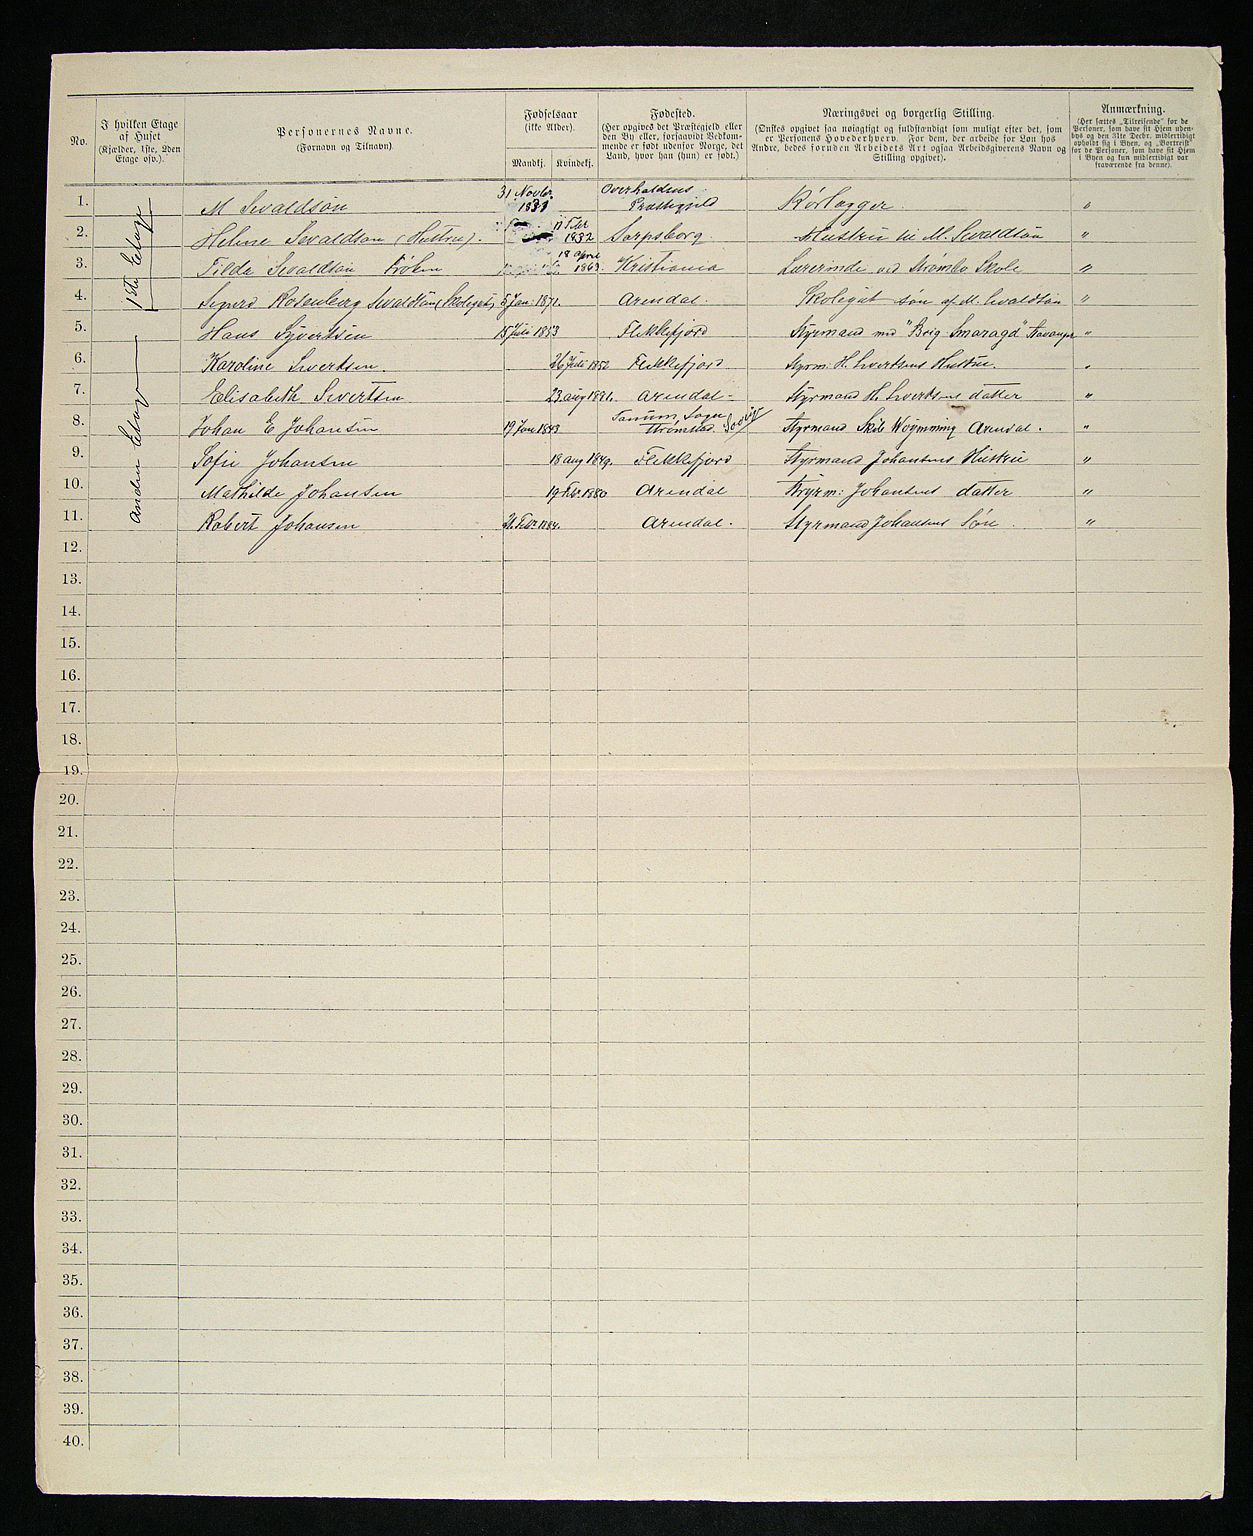 No. | I hvilken Etage af Huset (Kjælder, 1ste, 2den Etage osv.). | Personernes Navne. (Fornavn og Tilnavn). | Fødselsaar (ikke Alder). Mandkj. | Kvindekj. | Fødested. (Her opgives det Præstegjeld eller den By eller, forsaavidt Vedkommende er født udenfor Norge, det Land, hvor han (hun) er født.) | Næringsvei og borgerlig Stilling. (Ønskes opgivet saa nøiagtigt og fuldstændigt som muligt efter det, som er Personens Hovederhverv. For dem, der arbeide for Løn hos Andre, bedes foruden Arbeidets Art ogsaa Arbeidsgiverens Navn og Stilling opgivet). | Anmærkning. (Her sættes „Tilreisende“ for de Personer, som have sit Hjem udenbys og den 31te Decbr. midlertidigt opholdt sig i Byen, og „Bortreist“ for de Personer, som have sit Hjem i Byen og kun midlertidigt var fraværende fra denne).
1. | 1ste Etage | M Sivaldson | 31 Novbr. 1831 | Overhaldens Præstegjeld | Kørlægger | "
2. | Helene Sivaldson (Hustru). | 11 Febr 1832 | Sarpsborg | Hustru til M. Sivaldson | "
3. | Tilda Sivaldson Frøken | 18 april 1863 | Kristiania | Lærerinde ved Strømbo Skole | "
4. | Sigurd Rosenberg Sivaldson (Skolegut) | 5 Jan: 1871. | Arendal. | Skolegut søn af M. Sivaldson | "
5. | Anden Etage | Hans Syvertsen | 15 Juli 1853 | Flekkefjord | Styrmand med "Brig Smaragd" Stavanger | "
6. | Karoline Sivertsen. | 26 Juli 1852 | Flekkefjord | Styrm: H. Sivertsens Hustru. | "
7. | Elisabeth Sivertsen | 23 aug 1881. | Arendal - | Styrmand H. Sivertsens datter | "
8. | Johan E Johansen | 19 Jan 1843 | Tanum Sogn Strømstad. Sverig | Styrmand Skib Woymming Arendal. | "
9. | Sofie Johansen | 18 aug 1849. | Flekkefjord | Styrmand Johansens Hustru | "
10. | Mathilde Johansen | 19 Feb. 1880 | Arendal | Styrm: Johansens datter | "
11. | Robert Johansen | 21. Febr. 1884. | Arendal. | Styrmand Johansens Søn | "
12.
13.
14.
15.
16.
17.
18.
19.
20.
21.
22.
23.
24.
25.
26.
27.
28.
29.
30.
31.
32.
33.
34.
35.
36.
37.
38.
39.
40.